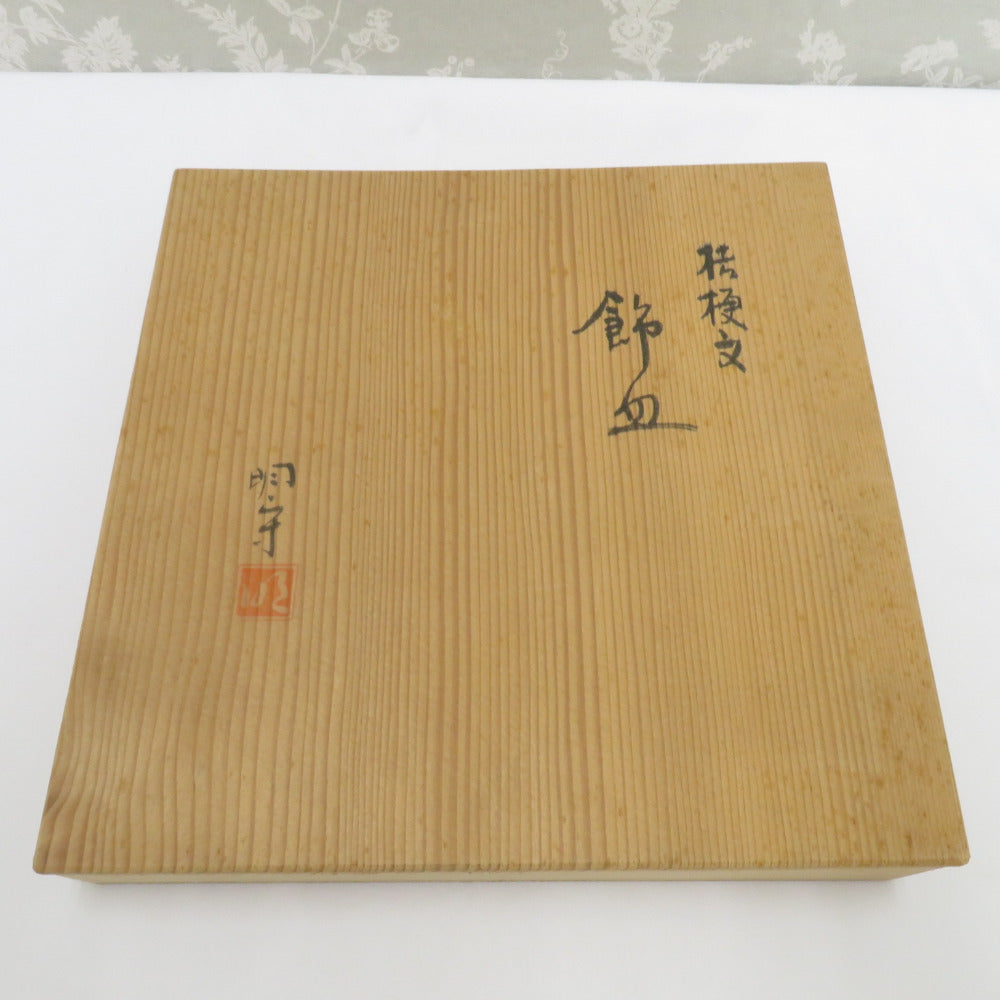 桔梗文
飾皿
明守
明